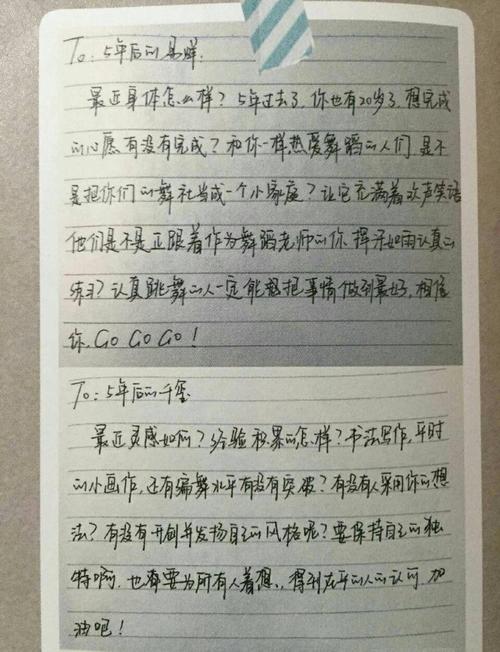 To: 5年后的易烊.
最近身体怎么样? 5年过去了, 你也有20岁了, 想完成
的心愿有没有完成? 和你一样热爱舞蹈的人们, 是不
是把你们的舞社当成一个小家庭? 让它充满着欢声笑语
他们是不是正跟着作为舞蹈老师的你, 挥汗如雨认真的
练习? 认真跳舞的人一定能把事情做到最好, 相信
你, GO GO GO!
To: 5年后的千玺
最近灵感如何? 经验积累的怎样? 书法写作, 平时
的小画作, 还有编舞水平有没有突破? 有没有人采用你的想
法? 有没有开创并发扬自己的风格呢? 要保持自己的独
特啊, 也要为所有人着想, 得到在乎的人的认可, 加
油吧!